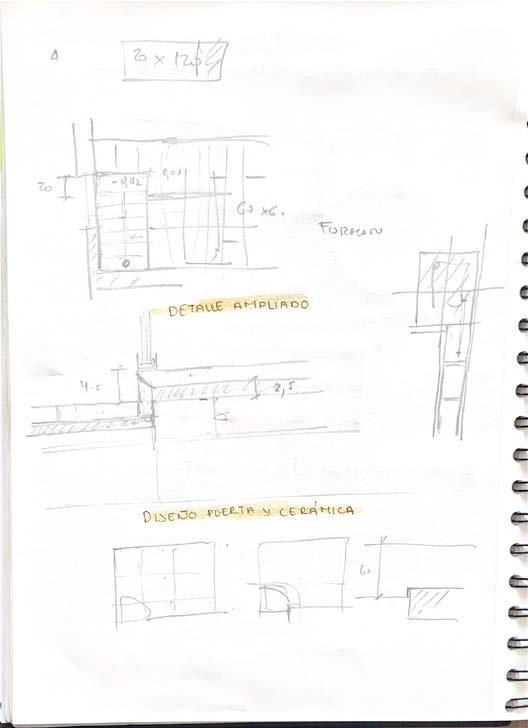 20 x 120
-0,02 0,00
20
60 x 6.
DETALLE AMPLIADO
4.5
2,5
DISEÑO PUERTA Y CERÁMICA
60